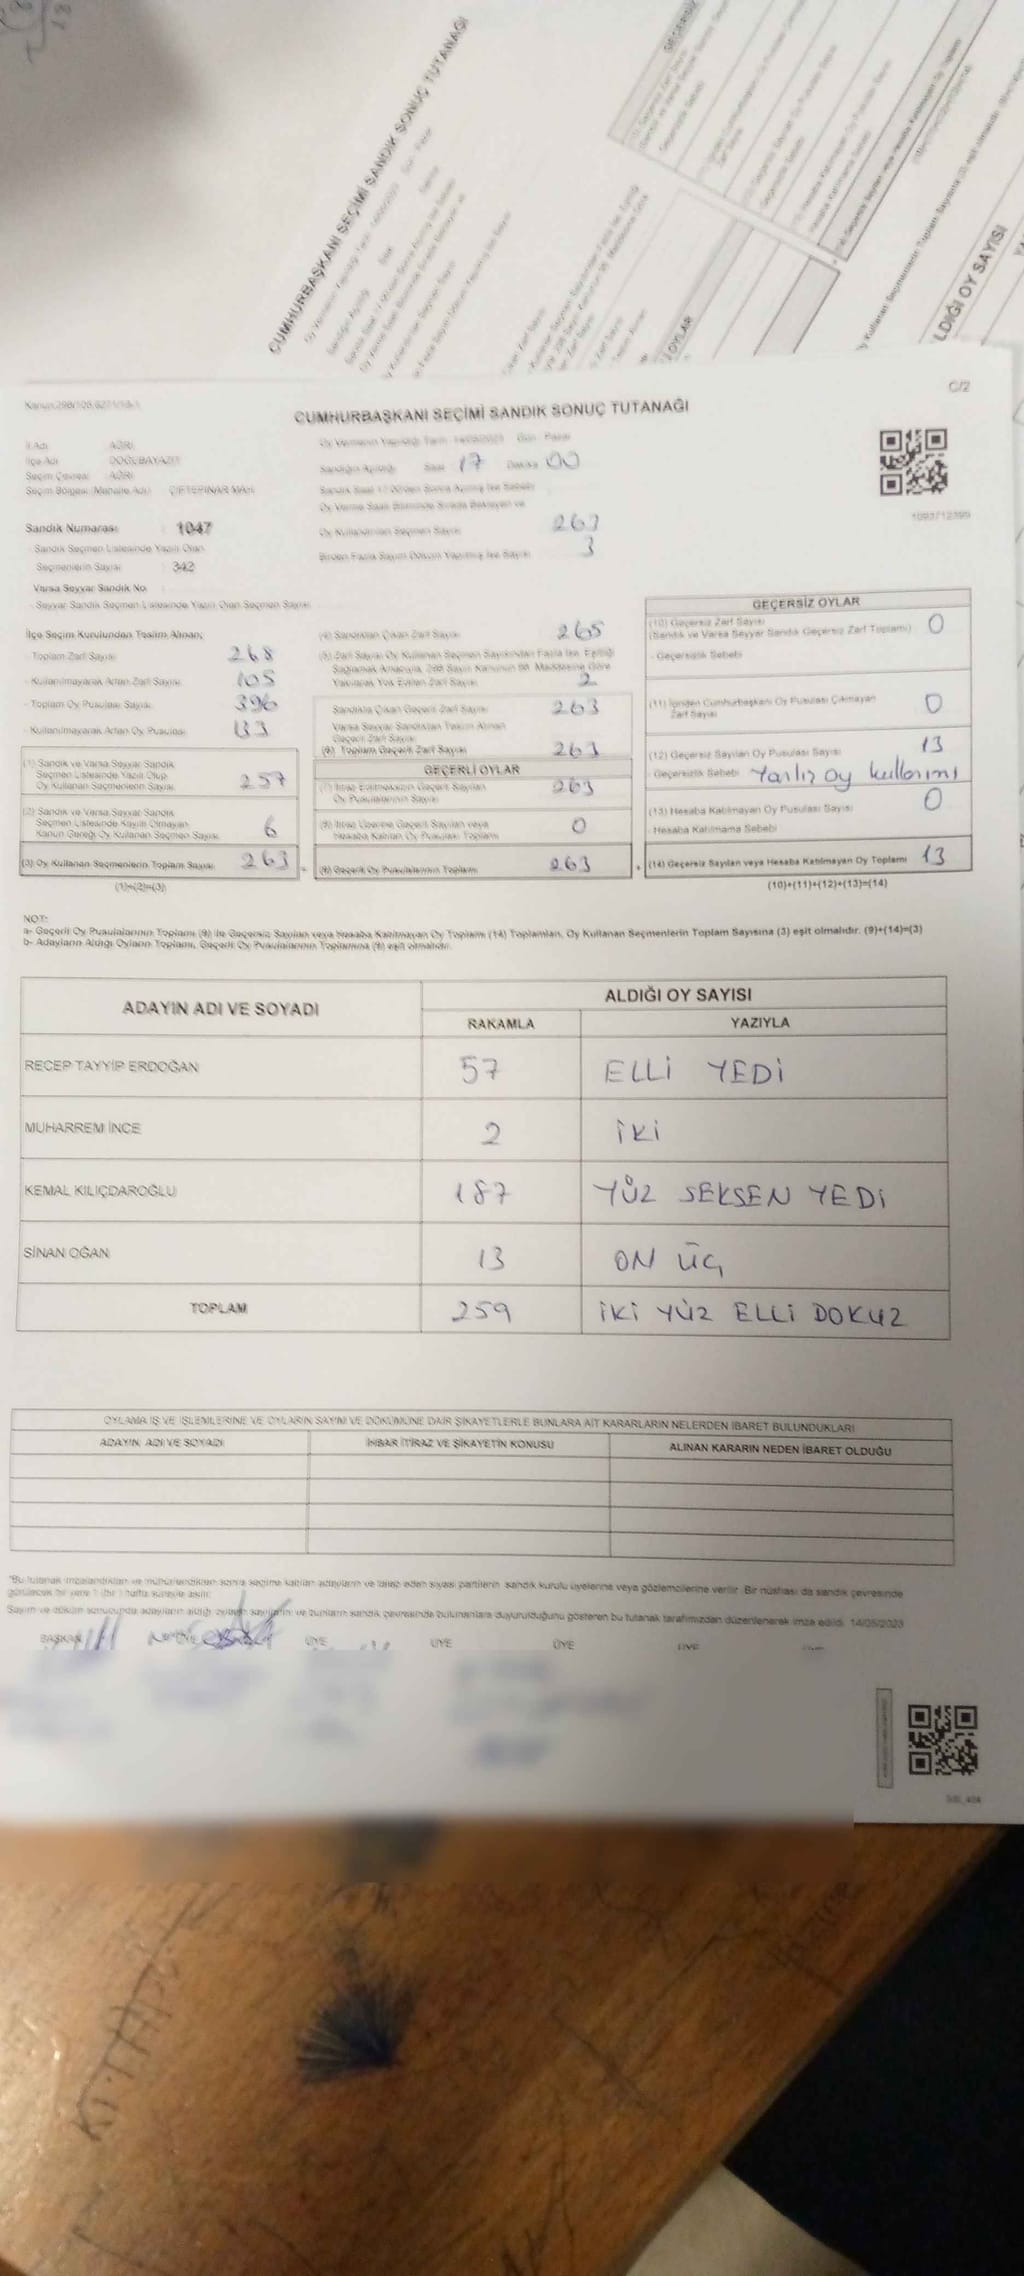 CUMHURBAŞKANI SEÇİMİ SANDIK SONUÇ TUTANAĞI
GEÇERSİZ
OYLAR
LDIĞI OY SAYISI
C/2
Kanun:298/105,6271/18-1
CUMHURBAŞKANI SEÇİMİ SANDIK SONUÇ TUTANAĞI
İl Adı : AĞRI
İlçe Adı : DOĞUBAYAZIT
Seçim Çevresi : AĞRI
Seçim Bölgesi (Mahalle Adı) : ÇİFTEPINAR MAH.
Oy Vermenin Yapıldığı Tarih : 14/05/2023 Gün : Pazar
Sandığın Açıldığı Saat : 17 Dakika : 00
Sandık Saat 17:00'den Sonra Açılmış İse Sebebi :
Oy Verme Saati Bitiminde Sırada Bekleyen ve
Oy Kullandırılan Seçmen Sayısı : 263
Birden Fazla Sayım Döküm Yapılmış İse Sayısı : 3
1093712399
Sandık Numarası : 1047
- Sandık Seçmen Listesinde Yazılı Olan
Seçmenlerin Sayısı : 342
Varsa Seyyar Sandık No :
- Seyyar Sandık Seçmen Listesinde Yazılı Olan Seçmen Sayısı :
İlçe Seçim Kurulundan Teslim Alınan;
- Toplam Zarf Sayısı : 268
- Kullanılmayarak Artan Zarf Sayısı : 105
- Toplam Oy Pusulası Sayısı : 396
- Kullanılmayarak Artan Oy Pusulası : 133
(1) Sandık ve Varsa Seyyar Sandık
Seçmen Listesinde Yazılı Olup
Oy Kullanan Seçmenlerin Sayısı : 257
(2) Sandık ve Varsa Seyyar Sandık
Seçmen Listesinde Kayıtlı Olmayan
Kanun Gereği Oy Kullanan Seçmen Sayısı : 6
(3) Oy Kullanan Seçmenlerin Toplam Sayısı : 263
(1)+(2)=(3)
(4) Sandıktan Çıkan Zarf Sayısı : 265
(5) Zarf Sayısı Oy Kullanan Seçmen Sayısından Fazla İse, Eşitliği
Sağlamak Amacıyla, 298 Sayılı Kanunun 98. Maddesine Göre
Yakılarak Yok Edilen Zarf Sayısı : 2
Sandıkta Çıkan Geçerli Zarf Sayısı : 263
Varsa Seyyar Sandıktan Teslim Alınan
Geçerli Zarf Sayısı :
(6) Toplam Geçerli Zarf Sayısı : 263
GEÇERLİ OYLAR
(7) İtiraz Edilmeksizin Geçerli Sayılan
Oy Pusulalarının Sayısı : 263
(8) İtiraz Üzerine Geçerli Sayılan veya
Hesaba Katılan Oy Pusulası Toplamı : 0
(9) Geçerli Oy Pusulalarının Toplamı : 263
GEÇERSİZ OYLAR
(10) Geçersiz Zarf Sayısı : 0
(Sandık ve Varsa Seyyar Sandık Geçersiz Zarf Toplamı)
- Geçersizlik Sebebi :
(11) İçinden Cumhurbaşkanı Oy Pusulası Çıkmayan
Zarf Sayısı : 0
(12) Geçersiz Sayılan Oy Pusulası Sayısı : 13
- Geçersizlik Sebebi : Yanlız oy kullanımı
(13) Hesaba Katılmayan Oy Pusulası Sayısı : 0
- Hesaba Katılmama Sebebi :
(14) Geçersiz Sayılan veya Hesaba Katılmayan Oy Toplamı : 13
(10)+(11)+(12)+(13)=(14)
NOT:
a- Geçerli Oy Pusulalarının Toplamı (9) ile Geçersiz Sayılan veya Hesaba Katılmayan Oy Toplamı (14) Toplamları, Oy Kullanan Seçmenlerin Toplam Sayısına (3) eşit olmalıdır. (9)+(14)=(3)
b- Adayların Aldığı Oyların Toplamı, Geçerli Oy Pusulalarının Toplamına (9) eşit olmalıdır.
ADAYIN ADI VE SOYADI ALDIĞI OY SAYISI
RAKAMLA YAZIYLA
RECEP TAYYİP ERDOĞAN 57 ELLİ YEDİ
MUHARREM İNCE 2 İKİ
KEMAL KILIÇDAROĞLU 187 YÜZ SEKSEN YEDİ
SİNAN OĞAN 13 ON ÜÇ
TOPLAM 259 İKİ YÜZ ELLİ DOKUZ
OYLAMA İŞ VE İŞLEMLERİNE VE OYLARIN SAYIM VE DÖKÜMÜNE DAİR ŞİKAYETLERLE BUNLARA AİT KARARLARIN NELERDEN İBARET BULUNDUKLARI
ADAYIN, ADI VE SOYADI İHBAR İTİRAZ VE ŞİKAYETİN KONUSU ALINAN KARARIN NEDEN İBARET OLDUĞU
*Bu tutanak imzalandıktan ve mühürlendikten sonra seçime katılan adayların ve talep eden siyasi partilerin sandık kurulu üyelerine veya gözlemcilerine verilir. Bir nüshası da sandık çevresinde
görülecek bir yere 1 (bir) hafta süreyle asılır.
Sayım ve döküm sonucunda adayların aldığı oyların sayılarını ve bunların sandık çevresinde bulunanlara duyurulduğunu gösteren bu tutanak tarafımızdan düzenlenerek imza edildi. 14/05/2023
BAŞKAN ÜYE ÜYE ÜYE ÜYE